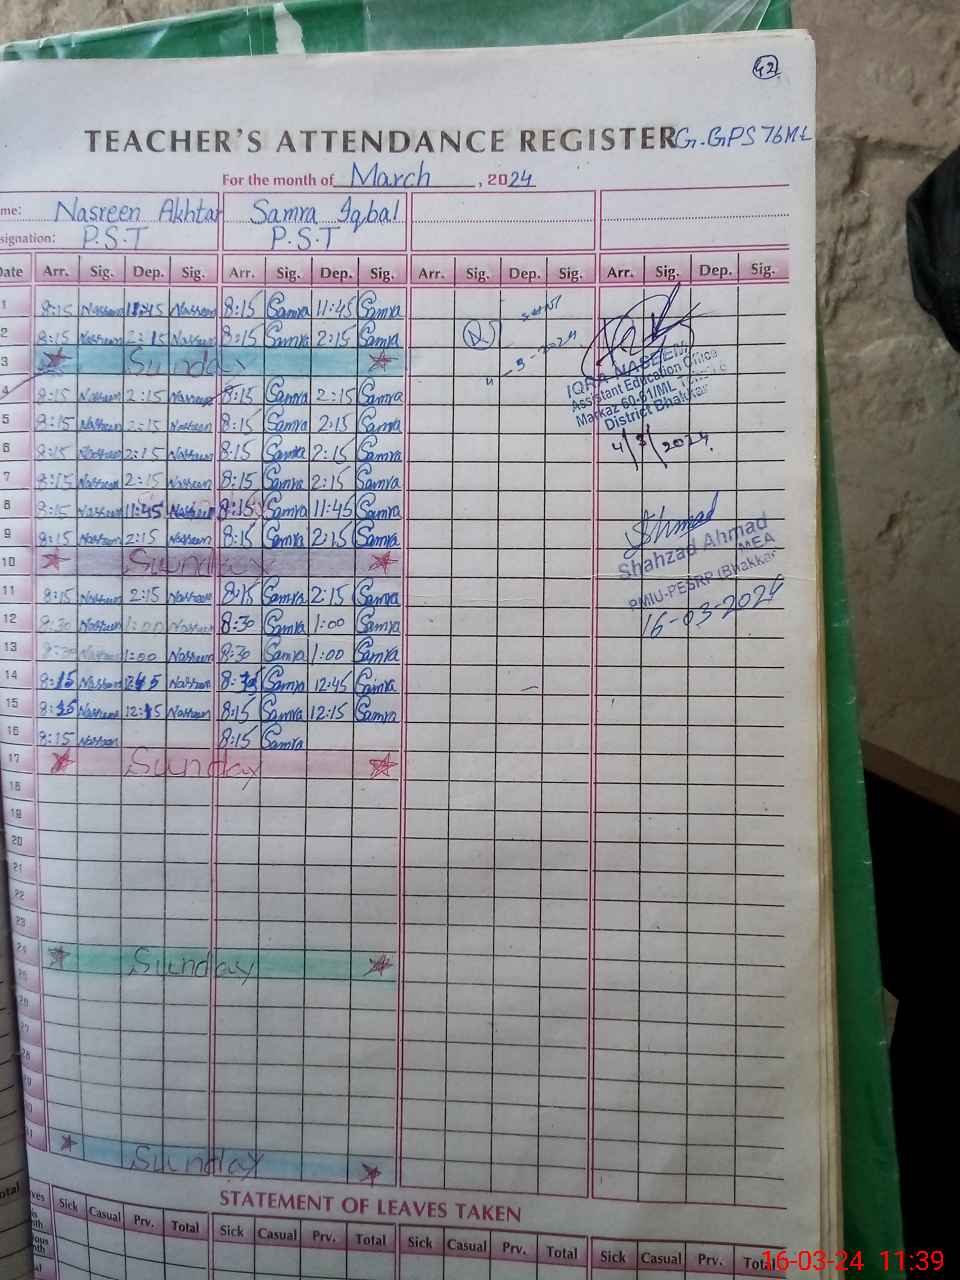 42
TEACHER'S ATTENDANCE REGISTER G.GPS 76ML
For the month of March, 2024
me: Nasreen Akhtar Samra Iqbal
signation: P.S.T P.S.T
Date Arr. Sig. Dep. Sig. Arr. Sig. Dep. Sig. Arr. Sig. Dep. Sig. Arr. Sig. Dep. Sig.
1 8:15 Nasreen 11:45 Nasreen 8:15 Samra 11:45 Samra
2 8:15 Nasreen 2:15 Nasreen 8:15 Samra 2:15 Samra
3 Sunday
4 8:15 Nasreen 2:15 Nasreen 8:15 Samra 2:15 Samra
5 8:15 Nasreen 2:15 Nasreen 8:15 Samra 2:15 Samra
6 8:15 Nasreen 2:15 Nasreen 8:15 Samra 2:15 Samra
7 8:15 Nasreen 2:15 Nasreen 8:15 Samra 2:15 Samra
8 8:15 Nasreen 11:45 Nasreen 8:15 Samra 11:45 Samra
9 8:15 Nasreen 2:15 Nasreen 8:15 Samra 2:15 Samra
10 Sunday
11 8:15 Nasreen 2:15 Nasreen 8:15 Samra 2:15 Samra
12 8:30 Nasreen 1:00 Nasreen 8:30 Samra 1:00 Samra
13 8:30 Nasreen 1:00 Nasreen 8:30 Samra 1:00 Samra
14 8:15 Nasreen 12:45 Nasreen Samra 12:45 Samra
15 8:15 Nasreen 12:15 Nasreen 8:15 Samra 12:15 Samra
16 8:15 Nasreen 8:15 Samra
17 Sunday
18
19
20
21
22
23
24 Sunday
25
26
27
28
29
30
31 Sunday
IQRA NASEEM
Assistant Education Office
Markaz 60-61/ML
District Bhakkar
4/3/2024
Shahzad Ahmad
MEA
PMIU-PESRP (Bhakkar
16-03-2024
STATEMENT OF LEAVES TAKEN
Sick Casual Prv. Total Sick Casual Prv. Total Sick Casual Prv. Total Sick Casual Prv. Total
16-03-24 11:39